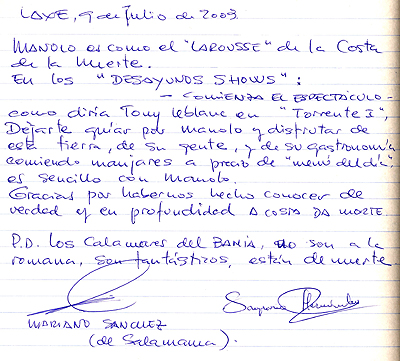 LAXE, 9 de Julio de 2003.
MANOLO es como el "LAROUSSE" de la Costa
de la Muerte.
EN LOS "DESAYUNOS SHOWS":
- COMIENZA EL ESPECTÁCULO -
como diría Tony leblanc en "Torrente I",
Dejarte guiar por manolo y disfrutar de
esta tierra, de su gente, y de su gastronomía
comiendo manjares a precio de "menú del día".
es sencillo con Manolo.
Gracias por habernos hecho conocer de
verdad y en profundidad A COSTA DA MORTE.
P.D. los Calamares del BAHÍA, no son a la
romana, son fantásticos, están de muerte.
MARIANO SANCHEZ
(de Salamanca).